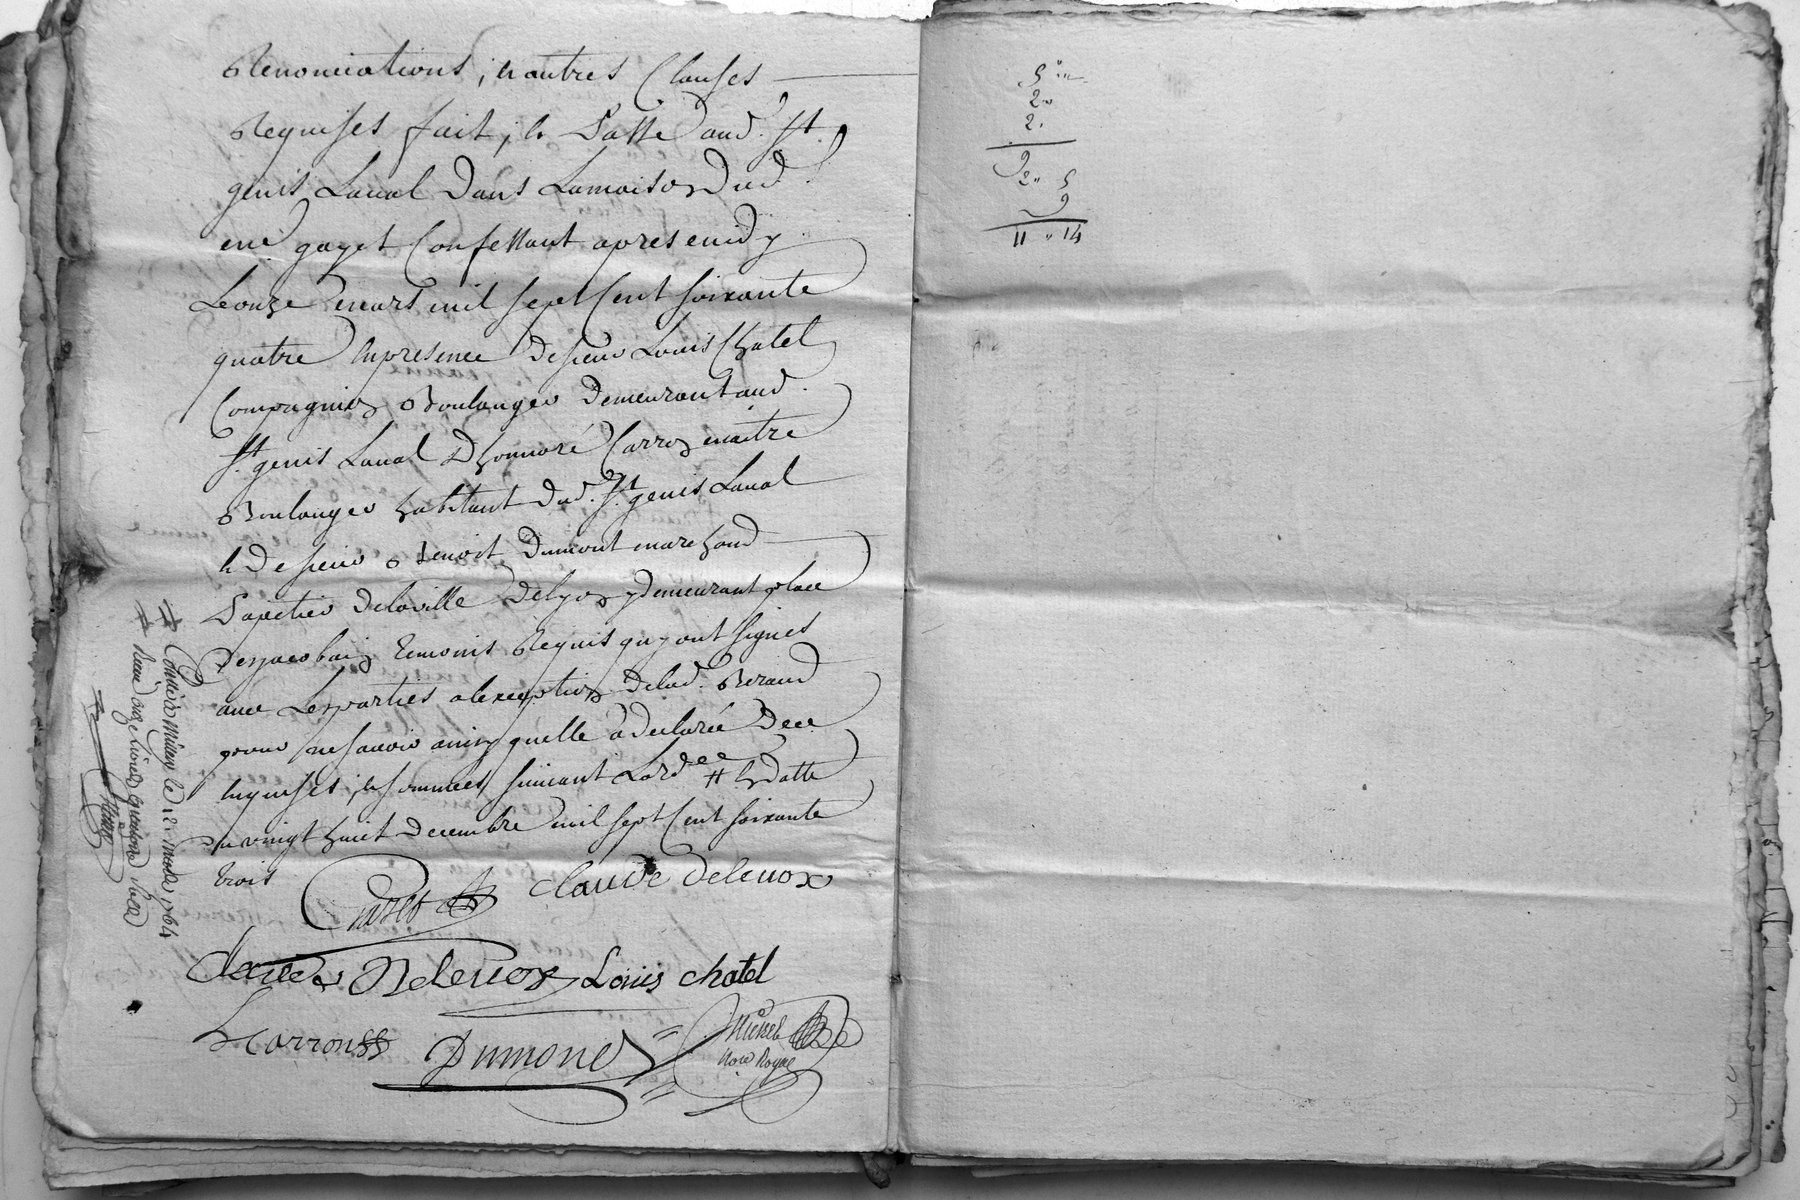 Renonciations, et autres Clauses
Requises fait, et Passé aud. St.
genis Laual dans Lamaison dud.
me gayet Confessant apres midy
Leonze mars mil sept Cent soixante
quatre En presence de sieur Louis Chatel
Compagnion Boulanger demeurant aud.
St. genis Laual honnoré Carron maitre
Boulanger habitant dud. St. genis Laual
et de sieur Benoit Dumont marchand
Papetier de laville delyon y demeurant place
des jacobains temoins Requis quy ont signés
auec Les parties al exception de lad. Beraud
pour ne sauoir ainsy quelle a declarée de ce
enquises, et sommées suiuant Lordce # En datte
du vingt huit decembre mil sept Cent soixante
trois
Gayet claude delenox
claude Delenox Louis chatel
h Carron Dumont Michel
Nore Royal
# Controllé le 12 mars 1764
# Reçu onze liures quatorze sols
5
2"
2"
9
2" 5
9
11 " 14